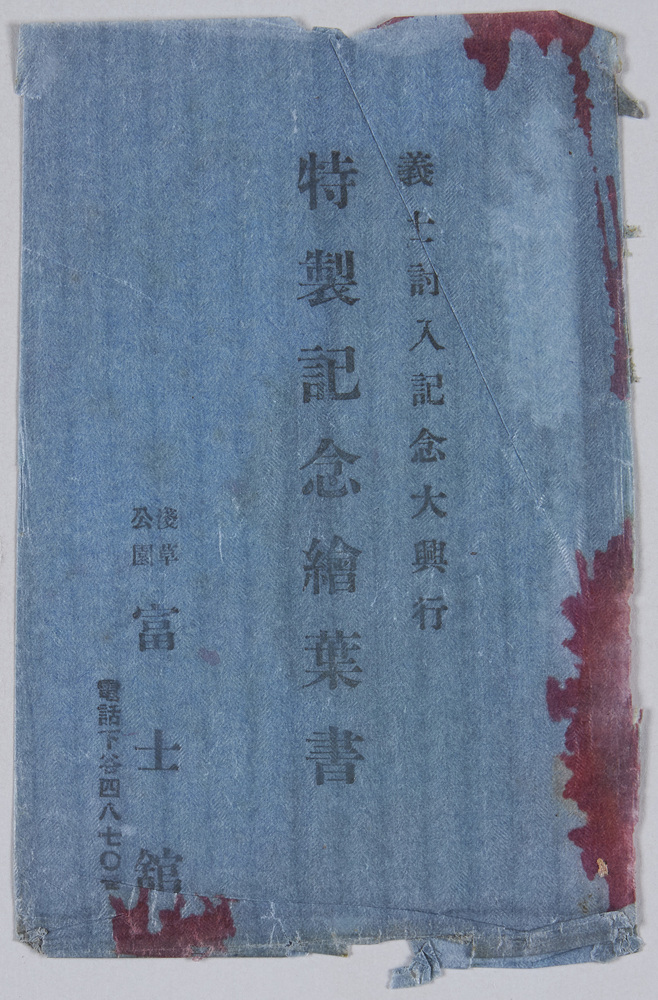 義士討入記念大興行
特製記念繪葉書
淺草
公園
富士館
電話下谷四八七〇